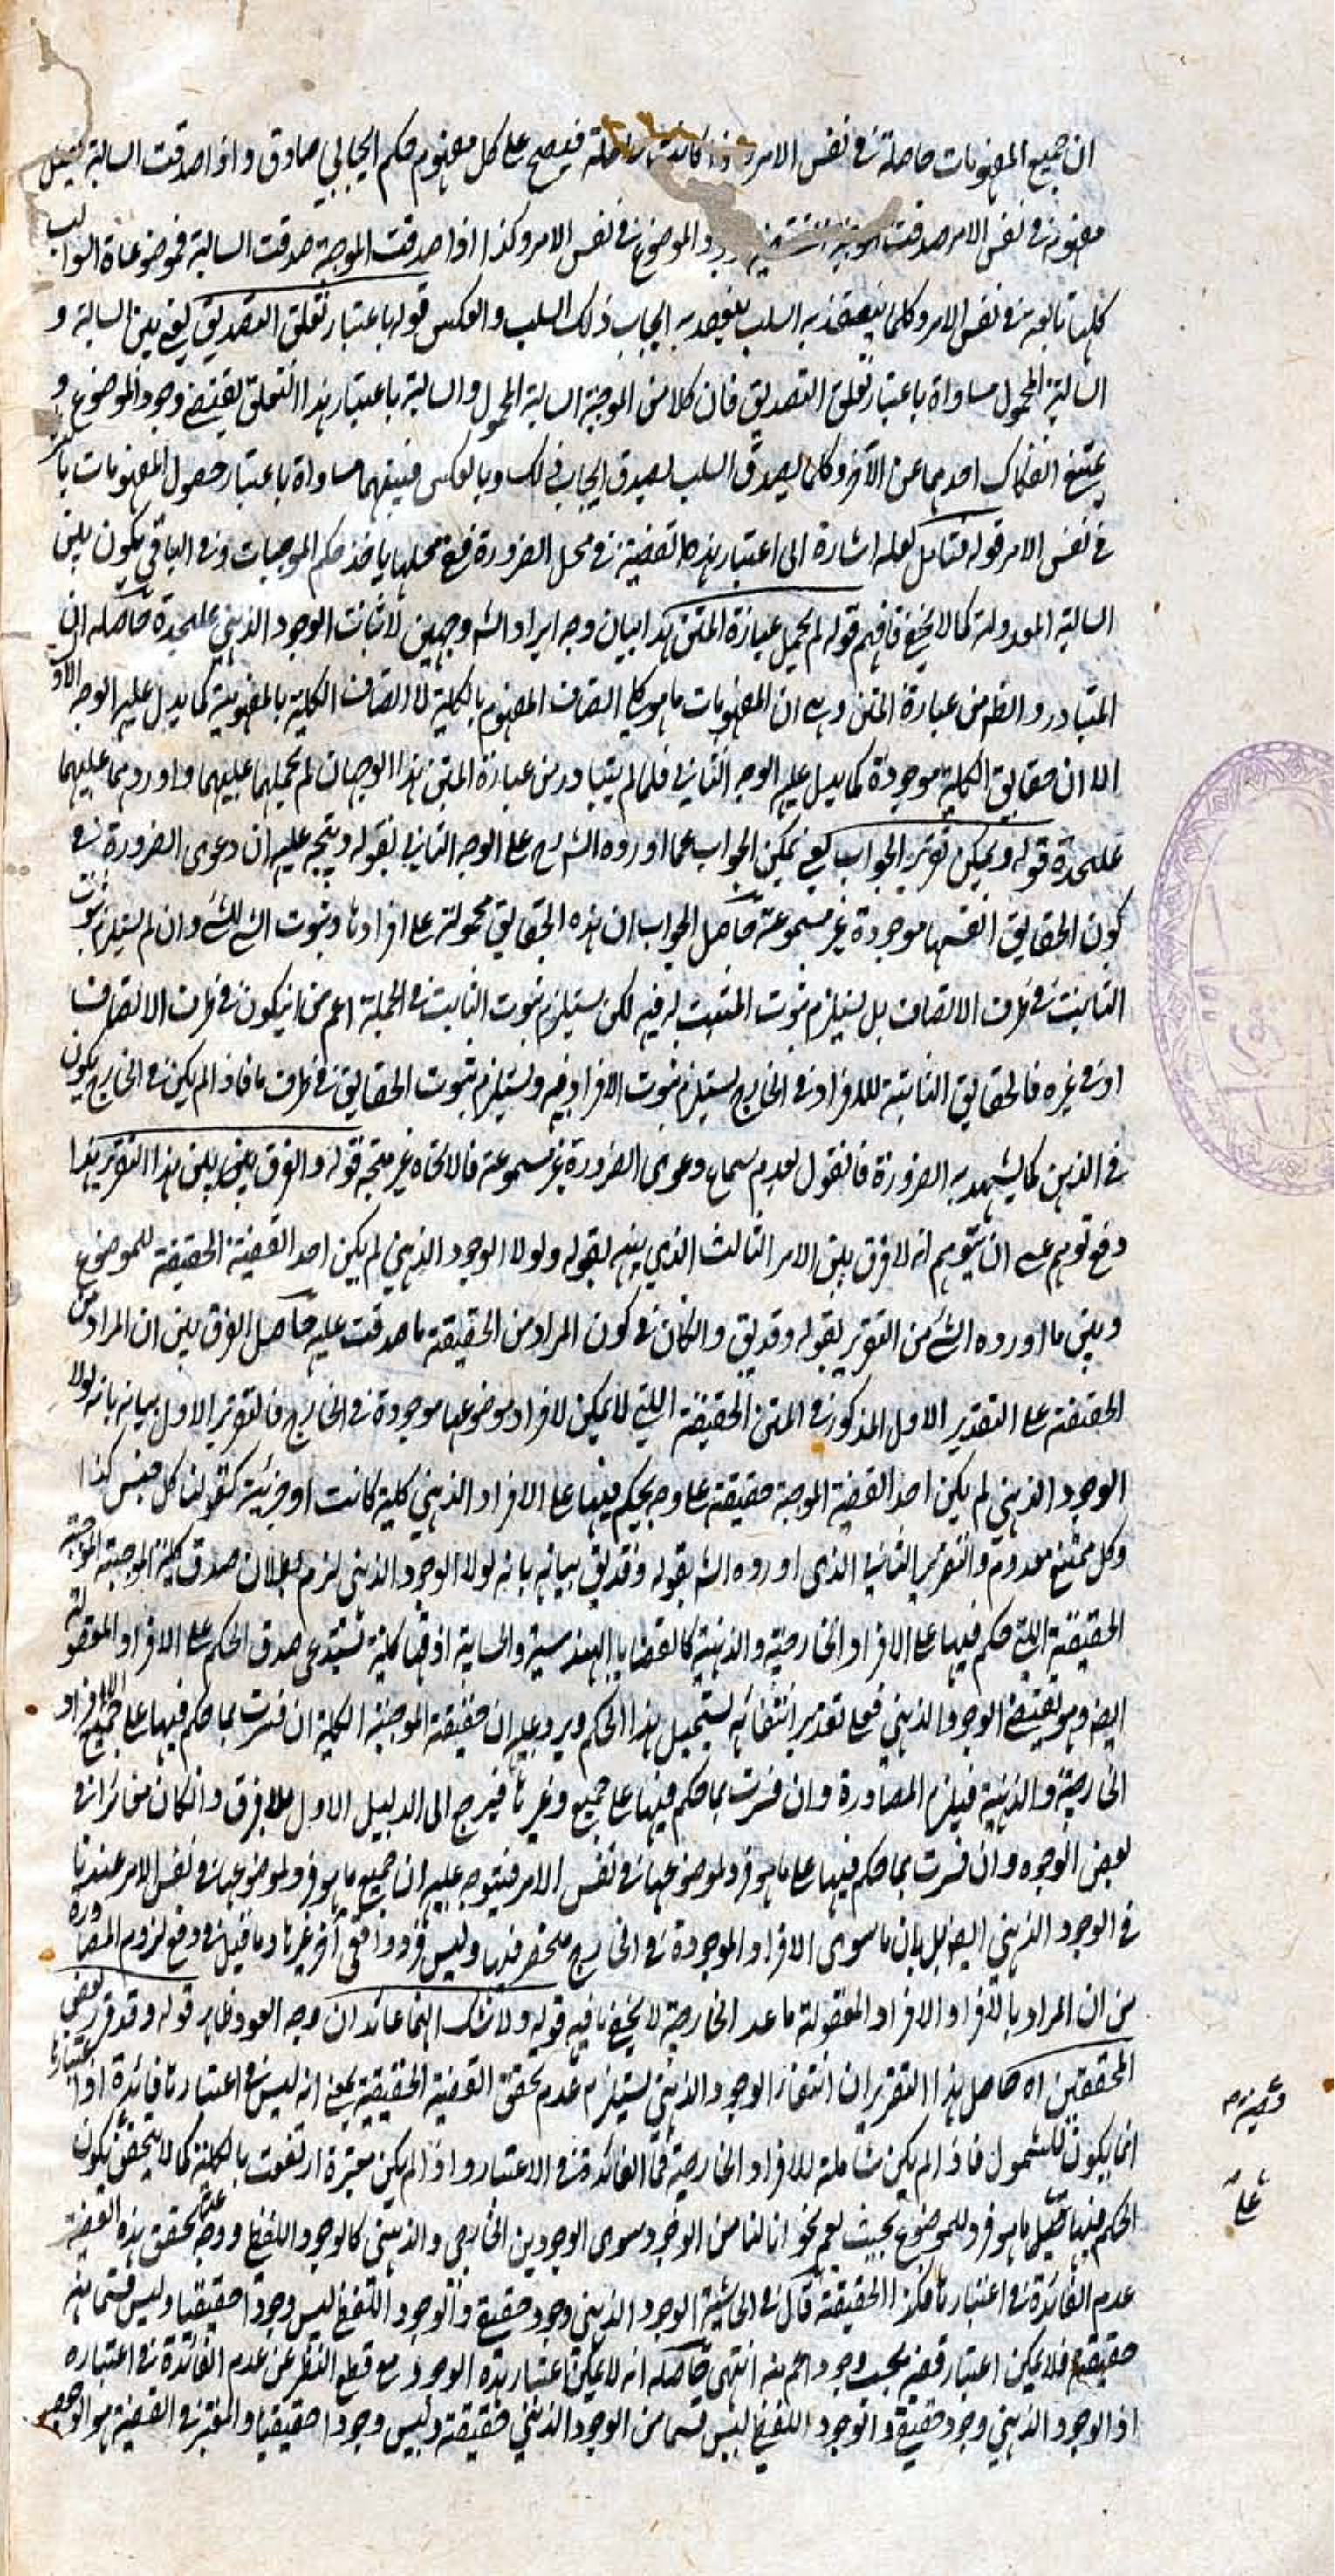 ان جميع المفهومات حاصلة في نفس الامر واذا كانت حاصلة فيصح على كل مفهوم حكم ايجابي صادق واذا صدقت السالبة
مفهومه في نفس الامر صدقت الموضوع في نفس الامر وكذا اذا صدقت الموجبة صدقت السالبة فموضوعاة السوالب
كلها ثابتة في نفس الامر وكلما ينعقد به السلب ينعقد به ايجاب ذلك السلب والعكس قوله باعتبار تعلق التصديق يعني بين السالبة و
السالبة المحمول مساواة باعتبار تعلق التصديق فان كلا من الموجبة السالبة المحمول والسالبة باعتبار هذا التعلق يقتضي وجود الموضوع و
يمتنع انفكاك احدهما عن الآخر وكلما يصدق السلب يصدق ايجاب ذلك وبالعكس فبينهما مساواة باعتبار حصول المفهومات باسرها
في نفس الامر قوله فتامل لعله اشارة الى اعتبار هذه القضية في محل الضرورة ففي محلها ياخذ حكم الموجبات وفي الباقي يكون بين
السالبة المعدولة كما لا يخفى فافهم قوله لم يحمل عبارة المتن هذا بيان وجه ايراد الشم وجهين لاثبات الوجود الذهني عليحدة حاصله ان
المتبادر والظم من عبارة المتن وهي ان المفهومات ما هو كلي اتصاف المفهوم بالكلية لا اتصاف الكلية بالمفهومية كما يدل عليه الوجه الاول
الا ان حقايق الكلية موجودة كما يدل عليه الوجه الثاني فلما لم يتبادر من عبارة المتن هذا الوجهان لم يحملها عليهما واوردهما عليهما
عليحدة قوله ويمكن تقرير الجواب يعني يمكن الجواب عما اورده الشارح على الوجه الثاني بقوله ويتجه عليه ان دعوى الضرورة في
كون الحقايق انفسها موجودة غير مسموعة حاصل الجواب ان هذه الحقايق محمولة على افرادها وثبوت الشئ للشئ وان لم يستلزم ثبوت
الثابت في ظرف الاتصاف بل يستلزم ثبوت المثبت له فيه لكن يستلزم ثبوت الثابت في الجملة اعم من ان يكون في ظرف الاتصاف
او في غيره فالحقايق الثابتة للافراد في الخارج يستلزم ثبوت الافراد فيه ويستلزم ثبوت الحقايق في ظرف ما فاذا لم يكن في الخارج يكون
في الذهن كما يشهد به الضرورة فالقول بعدم سماع دعوى الضرورة غير مسموعة فالاتجاه غير متجه قوله والفرق بين بين هذا التقرير هذا
دفع توهم عسى ان يتوهم انه لا فرق بين الامر الثالث الذي بينه بقوله ولولا الوجود الذهني لم يكن اخذ القضية الحقيقة للموضوع
وبين ما اورده الشئ من التقرير بقوله وقد يق والكان في كون المراد من الحقيقة ما صدقت عليه حاصل الفرق بين ان المراد من
الحقيقة على التقدير الاول المذكور في المتن الحقيقة التي لا يمكن لافراد موضوعها موجودة في الخارج فالتقرير الاول بيانه بانه لولا
الوجود الذهني لم يكن اخذ القضية الموجبة حقيقة على وجه يحكم فيها على الافراد الذهني كلية كانت او جزئية كقولنا كل جنس كذا
وكل ممتنع معدوم والتقرير الثاني الذي اورده الشه بقوله وقد يق بيانه بانه لولا الوجود الذهني لزم بطلان صدق كلية الموجبة الموجبة
الحقيقة التي حكم فيها على الافراد الخارجية والذهنية كالقضايا الهندسية والحسابية اذ هنا كلية تستدعي صدق الحكم على الافراد المعقولة
ايضا وهو يقتضي الوجود الذهني فعلى تقدير انتفائه يستحيل هذا الحكم ويرد عليه ان حقيقة الموجبة الكلية ان فسرت بما حكم فيها على جميع الافراد
الخارجية والذهنية فيلزم المصادرة وان فسرت بما حكم فيها على جميع وغيرها فيرجع الى الدليل الاول بلا فرق وانكان متمايزان في
بعض الوجوه وان فسرت بما حكم فيها على ما هو فرد لموضوعها في نفس الامر فيتوجه عليه ان جميع ما هو فرد لموضوعها في نفس الامر عندنا
في الوجود الذهني ايضا بل بان ما سوى الافراد الموجودة في الخارج منحصر فيها وليس فرد واقعي آخر غيرها وما قيل في دفع لزوم المصادرة
من ان المراد بالافراد الافراد المعقولة ما عدا الخارجية لا يخفى ما فيه قوله ولا شك انهما عائدان وجه العود ظاهر قوله وقد قرر بعض
المحققين اه حاصل هذا التقرير ان انتفاء الوجود الذهني يستلزم عدم تحقق القضية الحقيقية بمعنى انه ليس في اعتبارها فائدة اذ اعتبارها
انما يكون للشمول فاذا لم يكن شاملة للافراد الخارجية فما الفائدة في الاعتبار واذا لم يكن معتبرة ارتفعت بالكلية كما لا يتحقق يكون
الحكم فيها على ما هو فرد للموضوع بحيث يعم نحو انا لنا من الوجود سوى الوجودين الخارجي والذهني كالوجود اللفظي ووجه تحقق هذه القضية
عدم الفائدة في اعتبارها فكذا الحقيقة قال في الحاشية الوجود الذهني وجود حقيقي والوجود اللفظي ليس وجودا حقيقيا وليس قسما منه
حقيقة فلا يمكن اعتبار قضية بحسب وجود اعم منه انتهى حاصله انه لا يمكن اعتبار هذه الوجود مع قطع النظر عن عدم الفائدة في اعتباره
اذ الوجود الذهني وجود حقيقي والوجود اللفظي ليس قسما من الوجود الذهني حقيقة وليس وجودا حقيقيا والمعتبر في القضية هو الوجود